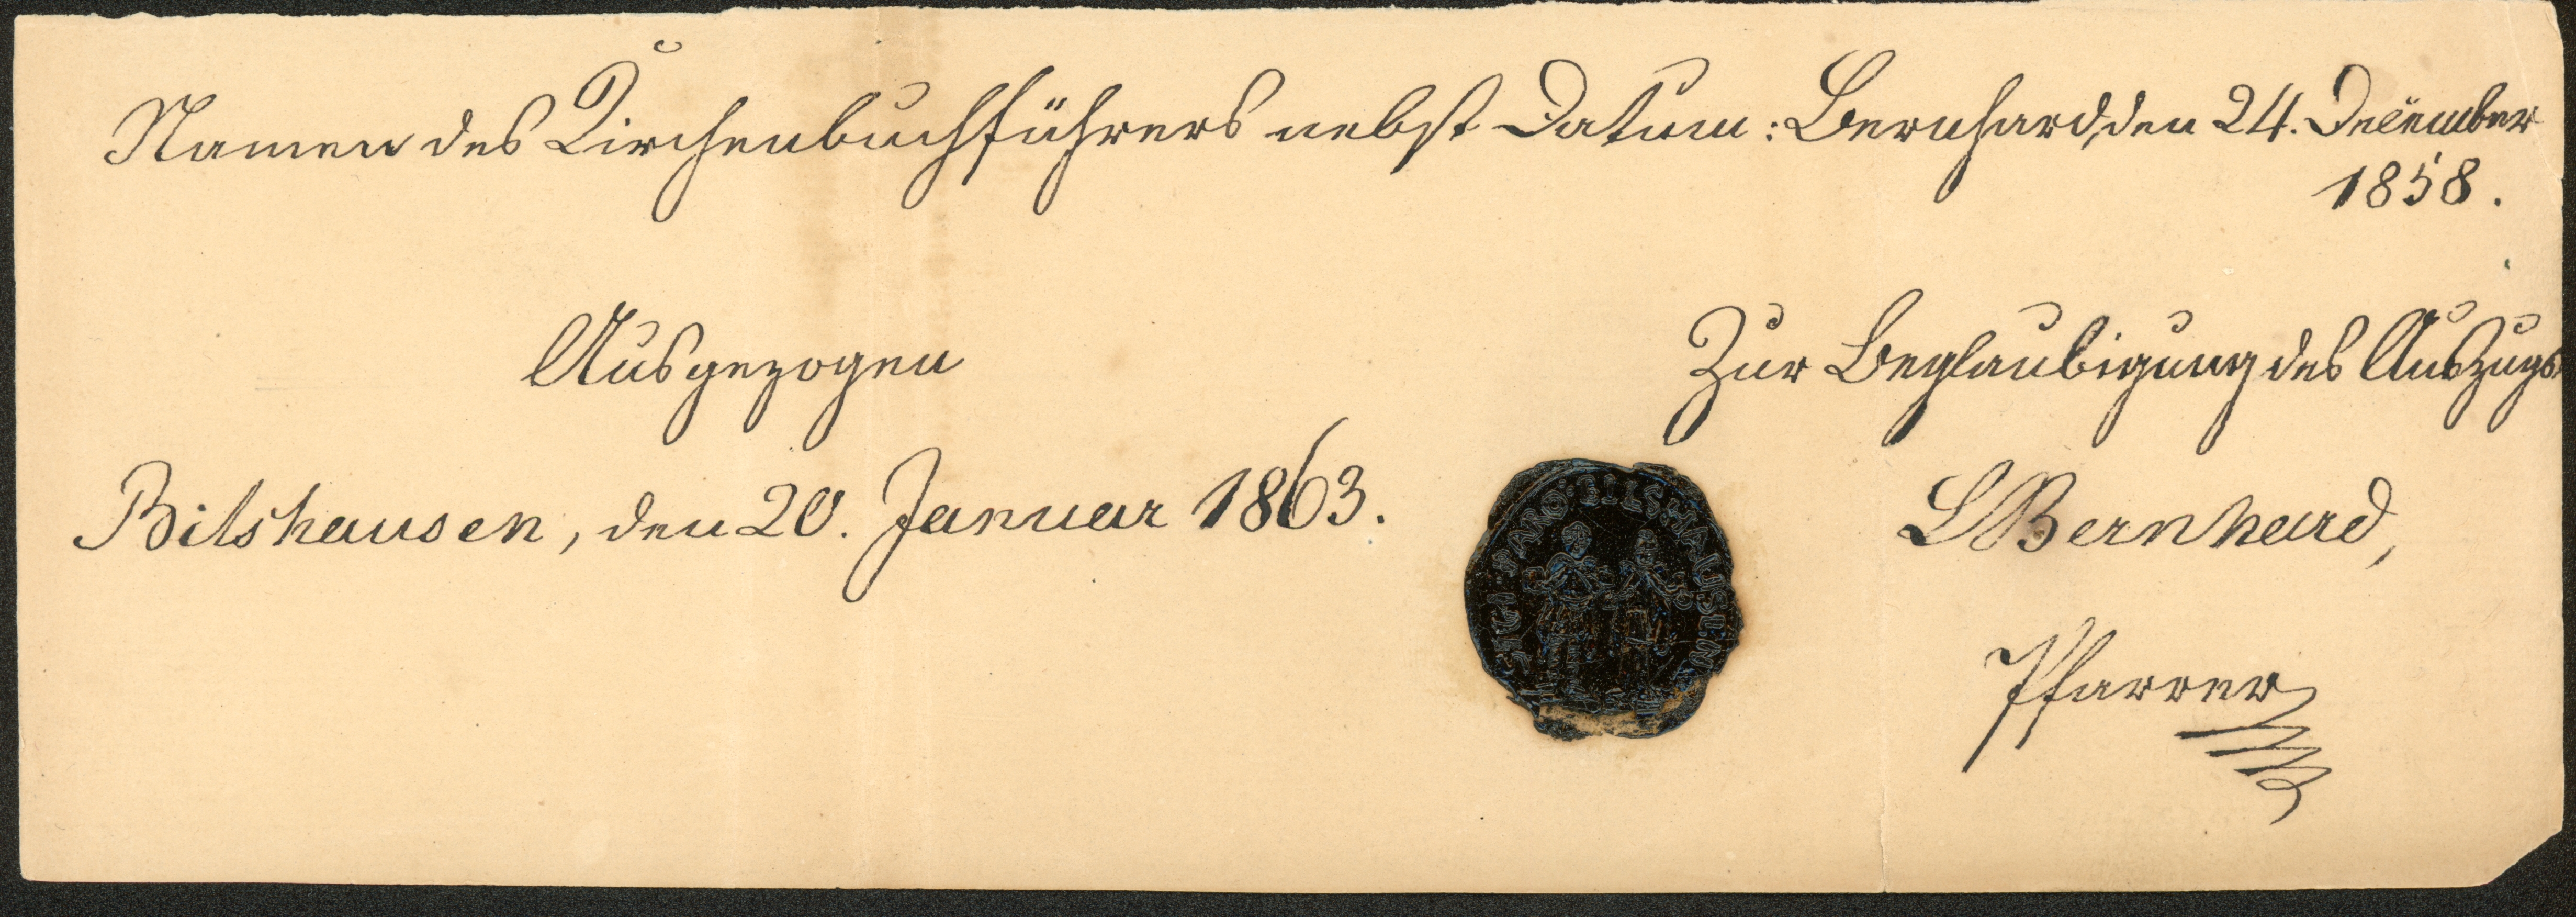 Namen des Kirchenbuchführers nebst Datum: Bernhard, den 24. December
1858.
Ausgezogen
Zur Beglaubigung des Auszugs
Bilshausen, den 20. Januar 1863.
LBernhard,
Pfarrer
BILSHAUSEN